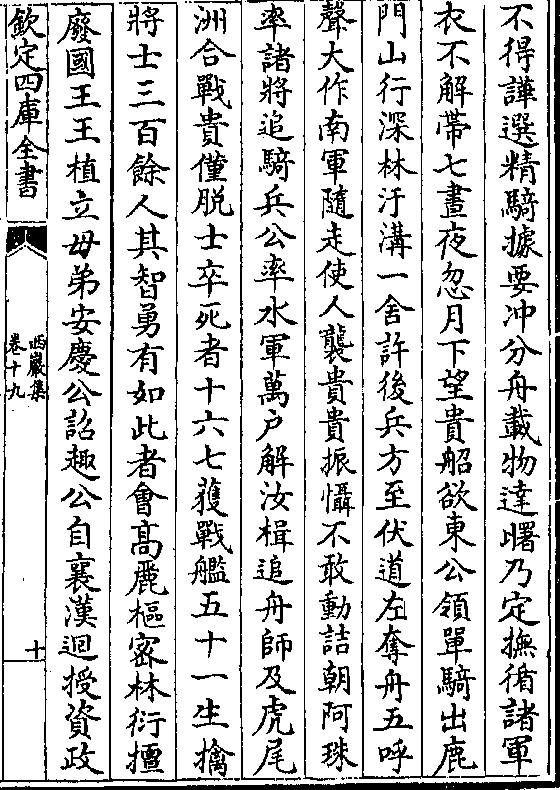 不得譁選精騎據要冲分舟載物達曙乃定撫循諸軍
衣不解帶七晝夜忽月下望貴船欲東公領單騎出鹿
門山行深林汙溝一舍許後兵方至伏道左奪舟五呼
聲大作南軍隨走使人襲貴貴振懾不敢動詰朝阿珠
率諸將追騎兵公率水軍萬户解汝楫追舟師及虎尾
洲合戰貴僅脱士卒死者十六七獲戰艦五十一生擒
將士三百餘人其智勇有如此者會髙麗樞密林衍擅
廢國王王植立母弟安慶公詔趣公自襄漢迴授資政
欽定四庫全書
西巖集
卷十九
十